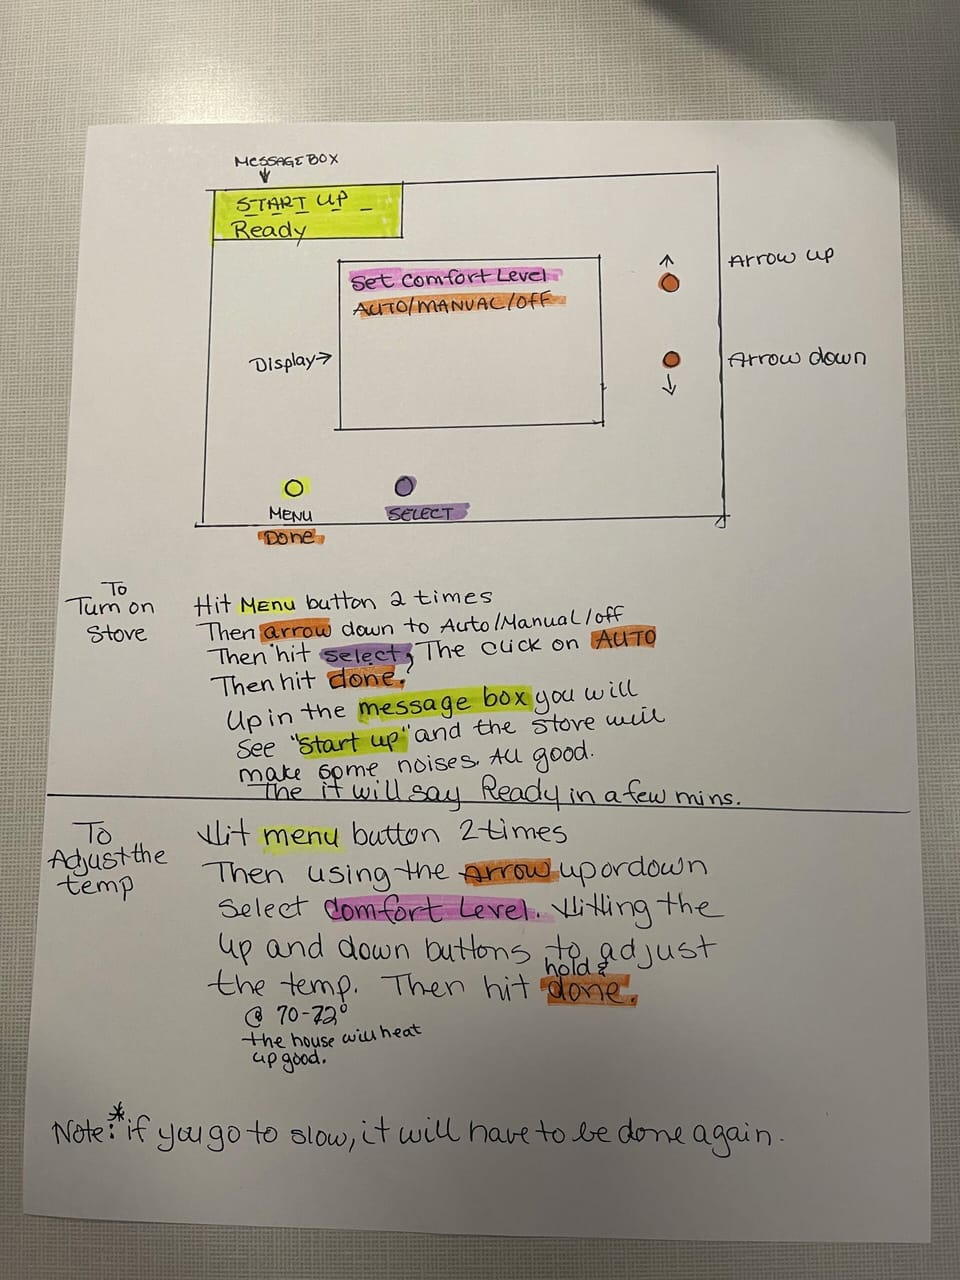 MESSAGE BOX
START UP
Ready
Set Comfort Level
AUTO/MANUAL/OFF
Arrow up
Display→
Arrow down
MENU
SELECT
Done
To
Turn on
Stove
Hit MENU button 2 times
Then arrow down to Auto/Manual/off
Then hit select, The click on AUTO
Then hit done.
Up in the message box you will
see "Start up" and the stove will
make some noises. All good.
The it will say Ready in a few mins.
To
Adjust the
temp
Hit menu button 2 times
Then using the Arrow up or down
Select Comfort Level. Hitting the
up and down buttons to adjust
hold &
the temp. Then hit done.
@ 70-72°
the house will heat
up good.
Note:* if you go to slow, it will have to be done again.